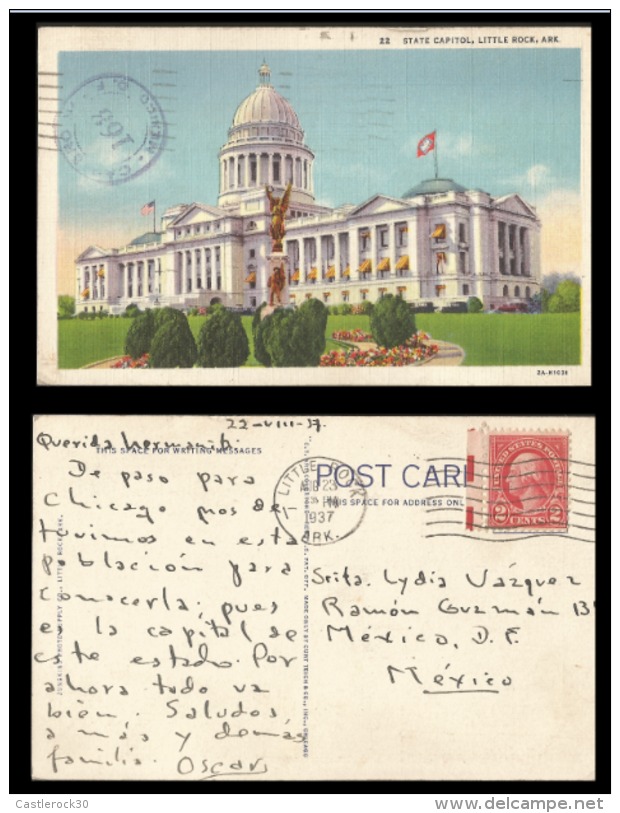 22 STATE CAPITOL, LITTLE ROCK, ARK.
168
2A-H1036
22-VIII-37.
Querida hermanita:
THIS SPACE FOR WRITING MESSAGES
De paso para
Chicago nos de
tuvimos en esta
población para
conocerla; pues
es la capital de
este estado. Por
ahora todo va
bien. Saludos
a más y demás
familia. Oscar
POST CARD
THIS SPACE FOR ADDRESS ONLY
LITTLE ROCK
AUG 23
PM
1937
ARK.
UNITED STATES POSTAGE
2 CENTS 2
Srita. Lydia Vázquez
Ramón Guzmán 13
México, D. F.
México
Castlerock30
www.delcampe.net